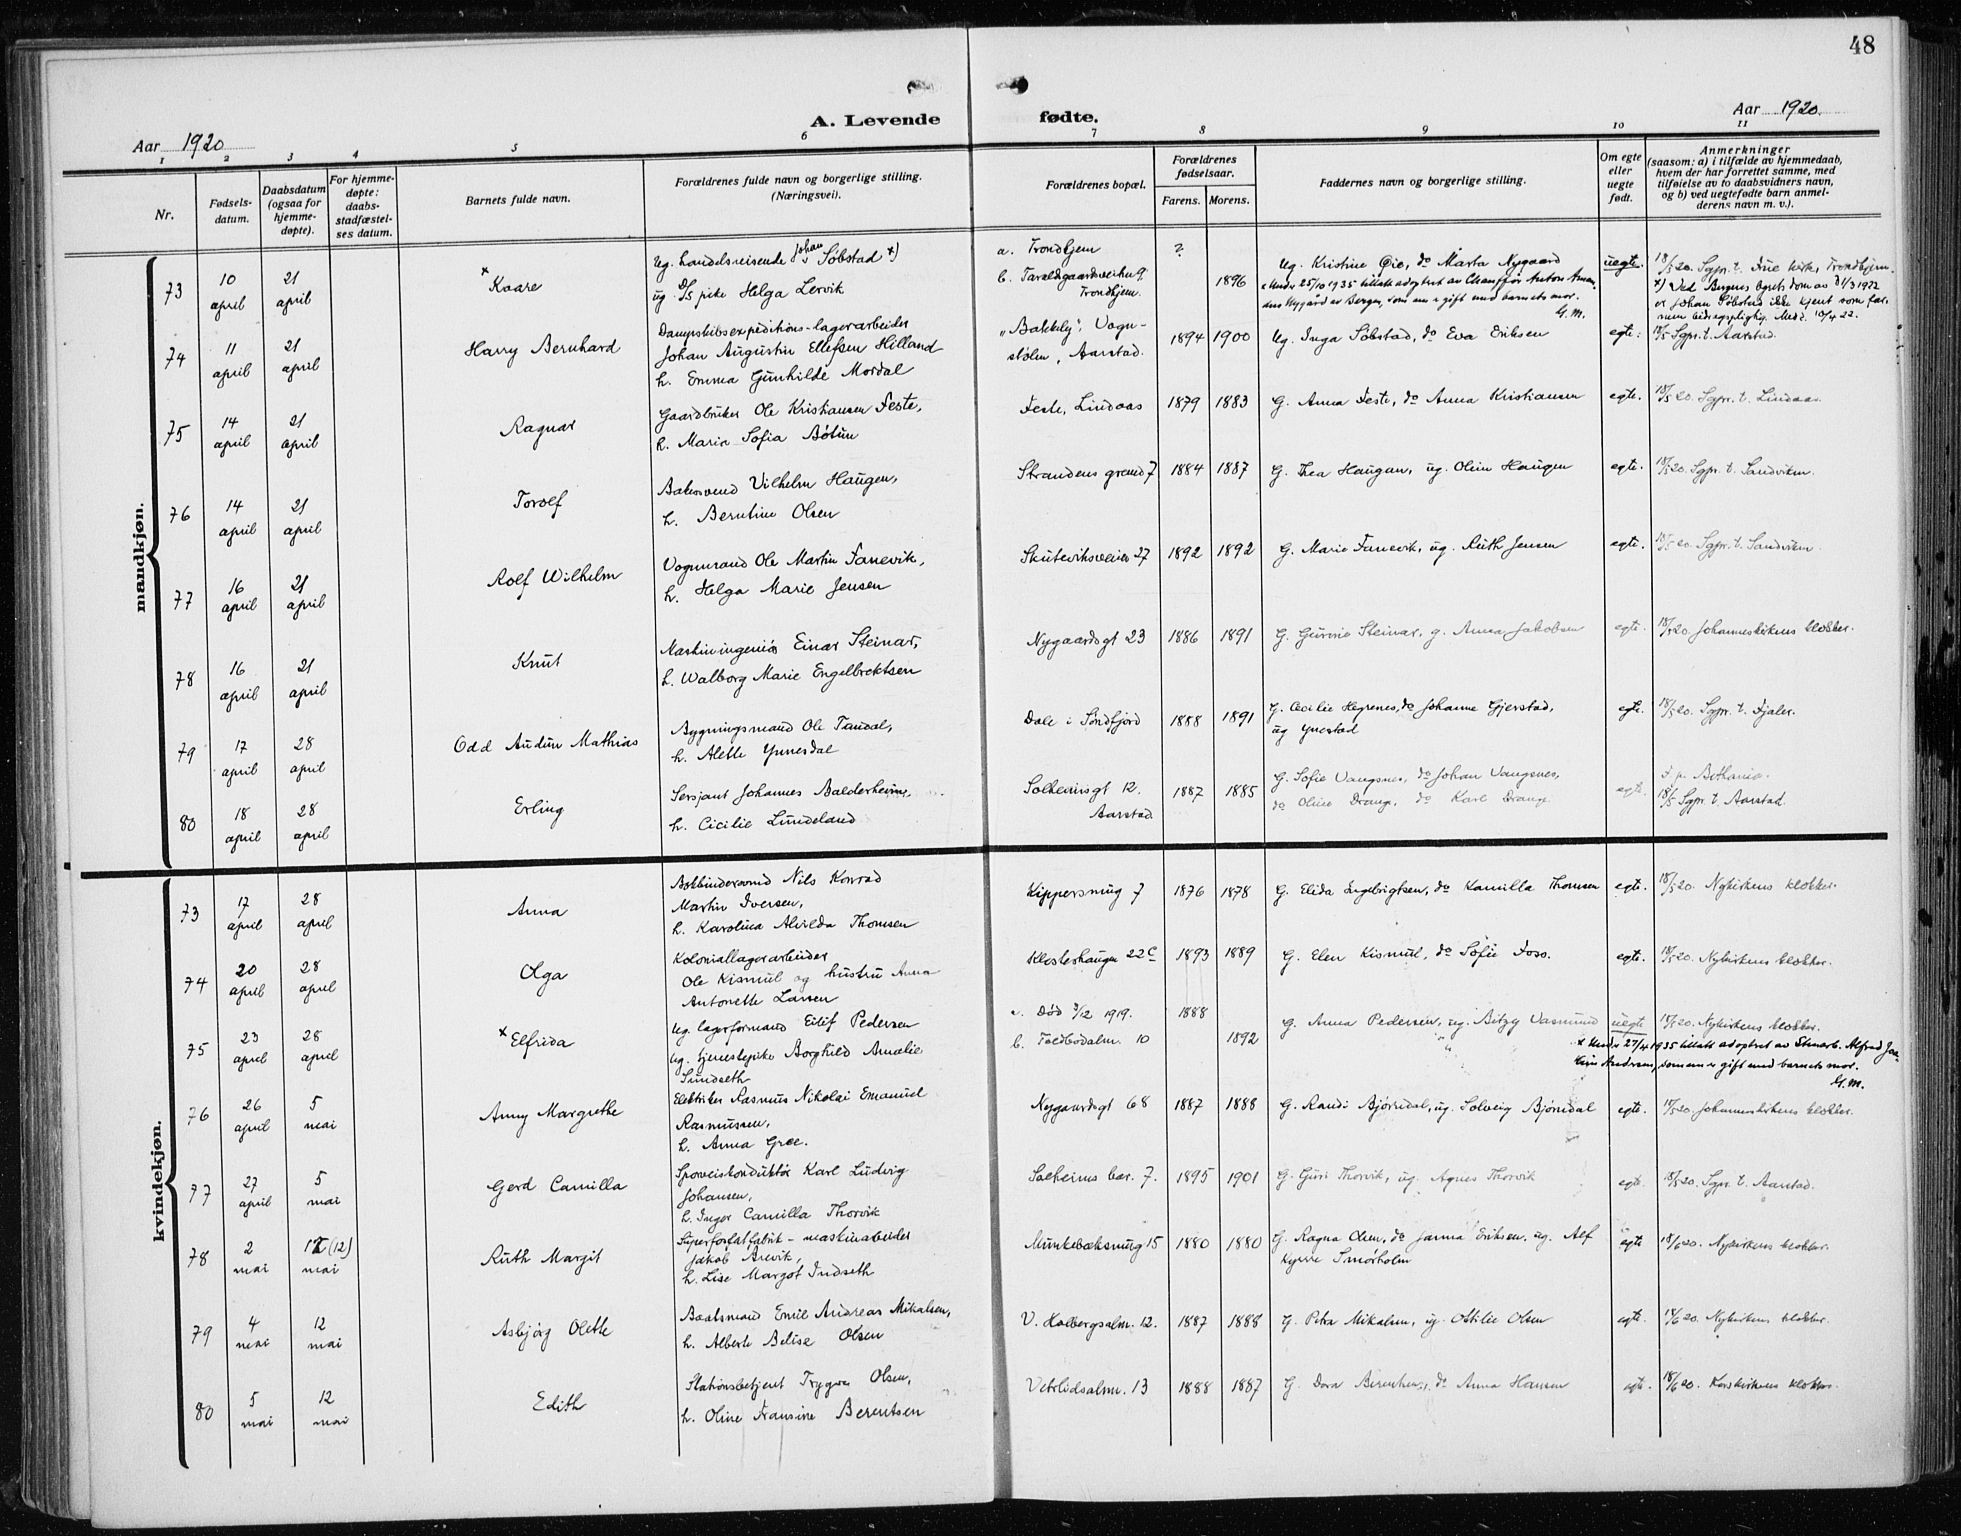 48
Aar 1920
A. Levende fødte.
Aar 1920.
1 2 3 4 5 6 7 8 9 10 11
Nr.
Fødsels-
datum.
Daabsdatum
(ogsaa for
hjemme-
døpte).
For hjemme-
døpte:
daabs-
stadfæstel-
ses datum.
Barnets fulde navn.
Forældrenes fulde navn og borgerlige stilling.
(Næringsvei).
Forældrenes bopæl.
Forældrenes
fødselsaar.
Farens. Morens.
Faddernes navn og borgerlige stilling.
Om egte
eller
uegte
født.
Anmerkninger
(saasom: a) i tilfælde av hjemmedaab,
hvem der har forrettet samme, med
tilføielse av to daabsvidners navn,
og b) ved uegtefødte barn anmel-
derens navn m. v.).
mandkjøn.
73 10 april 21 april × Kaare
Ug. handelsreisende Johan Søbstad ×)
ug. pike Helga Lervik
a. Trondhjem
b. Taraldsgaardsveien 9.
Trondhjem.
? 1896
Ug. Kristine Øie, do Marta Nygaard
× Under 25/10 1935 tillatt adoptret av Chauffør Anton Aman-
dus Nygård av Bergen, som er gift med barnets mor.
G.M.
uegte.
18/5 20. Sgpr. t. Frue kirke, Trondhjem.
×) Ved Bergens byrets dom av 31/3 1922
er Johan Søbstad ikke kjent som far,
men bidragspligtig. Medd. 10/4 22.
74 11 april 21 april Harry Bernhard
Dampskibsexpeditions-lagerarbeider
Johan Augustin Ellefsen Hilland
h. Emma Gunhilde Mordal
"Bakkely", Vogn-
stølen, Aarstad.
1894 1900
Ug. Inga Søbstad, do Eva Eriksen
egte. 18/5 Sgpr. t. Aarstad.
75 14 april 21 april Ragnar
Gaardbruker Ole Kristiansen Feste,
h. Maria Sofia Bøtun
Feste, Lindaas 1879 1883
G. Anna Feste, do Anna Kristiansen
egte. 18/5 20. Sgpr. t. Lindaas.
76 14 april 21 april Torolf
Bakersvend Vilhelm Haugen,
h. Berntine Olsen
Strandens grend 7 1884 1887
G. Thea Haugan, ug. Olein Haugen
egte. 18/5 20. Sgpr. t. Sandviken.
77 16 april 21 april Rolf Wilhelm
Vognmand Ole Martin Fanevik,
h. Helga Marie Jensen
Skuteviksveien 27 1892 1892
G. Marie Fanevik, ug. Ruth Jensen
egte. 18/5 20. Sgpr. t. Sandviken.
78 16 april 21 april Knut
Maskiningeniør Einar Steinar,
h. Walborg Marie Engelbrektsen
Nygaardsgt 23 1886 1891
G. Gunnie Steinar, g. Anna Jakobsen
egte. 18/5 20. Johanneskirkens klokker.
79 17 april 28 april Odd Audun Mathias
Bygningsmand Ole Tandal,
h. Alette Ynnesdal
Dale i Søndfjord 1888 1891
G. Cecilie Hegrenes, do Johanne Gjerstad,
ug Ynestad
egte. 18/5 20. Sgpr. t. Fjaler.
80 18 april 28 april Erling
Sersjant Johannes Balderheim,
h. Cicilie Lundeland
Solheimsgt 12.
Aarstad
1887 1885
G. Sofie Vangsnes, do Johan Vangsnes,
do Oline Drange, do Karl Drange
egte.
F. p. Bethania.
18/5 Sgpr. t. Aarstad.
kvindekjøn.
73 17 april 28 april Anna
Bokbindersvend Nils Konrad
Martin Iversen,
h. Karolina Alvilda Thomsen
Kippersmug 7 1876 1878
G. Elida Ingebrigtsen, do Kamilla Thomsen
egte. 18/5 20. Nykirkens klokker.
74 20 april 28 april Olga
Koloniallagerarbeider
Ole Kismul og hustru Anna
Antonette Larsen
Klosterhaugen 22c 1893 1889
G. Elen Kismul, do Sofie Foss.
egte. 18/5 20. Nykirkens klokker.
75 23 april 28 april × Elfrida
Ug. lagerformand Eilif Pedersen
Ug. tjenestepike Borghild Amalie
Sundseth
a. Død 3/12 1919. 1888
b. Toldbodalm. 10 1892
G. Anna Pedersen, ug. Bitzy Vasmund
uegte 18/5 20. Nykirkens klokker.
× Under 27/4 1935 tillatt adoptret av Stuearb. Alfred Joa-
kim Andersen, som er gift med barnets mor.
G.M.
76 26 april 5 mai Anny Margrethe
Elektriker Rasmus Nikolai Emanuel
Rasmussen,
h. Anna Gree.
Nygaardsgt 68 1887 1888
G. Randi Bjørndal, ug. Solveig Bjørndal
egte. 18/5 20. Johanneskirkens klokker.
77 27 april 5 mai Gerd Camilla
Sporveiskonduktør Karl Ludvig
Johansen,
h. Inger Camilla Thorvik
Solheims bar. 7. 1895 1901
G. Guri Thorvik, ug. Agnes Thorvik
egte. 18/5 20. Sgpr. t. Aarstad.
78 2 mai 12 (12) mai Ruth Margit
Superfosfatfabrik-maskinarbeider
Jakob Brevik,
h. Lise Margot Indseth
Munkebæksmug 15 1880 1880
G. Ragna Olsen, do Janna Eriksen, ug. Alf
Kyrre Smørholm
egte 18/6 20. Nykirkens klokker.
79 4 mai 12 mai Asbjørg Olette
Baatsmand Emil Andreas Mikalsen,
h. Alberte Belisa Olsen
V. Holbergsalm. 12. 1887 1888
G. Petra Mikalsen, ug. Ottilie Olsen
egte. 18/6 20. Nykirkens klokker.
80 5 mai 12 mai Edith
Stationsbetjent Trygve Olsen,
h. Oline Fransine Berentsen
Vetrlidsalm. 13 1888 1887
G. Dora Berentsen, do Anna Hansen
egte. 18/6 20. Korskirkens klokker.